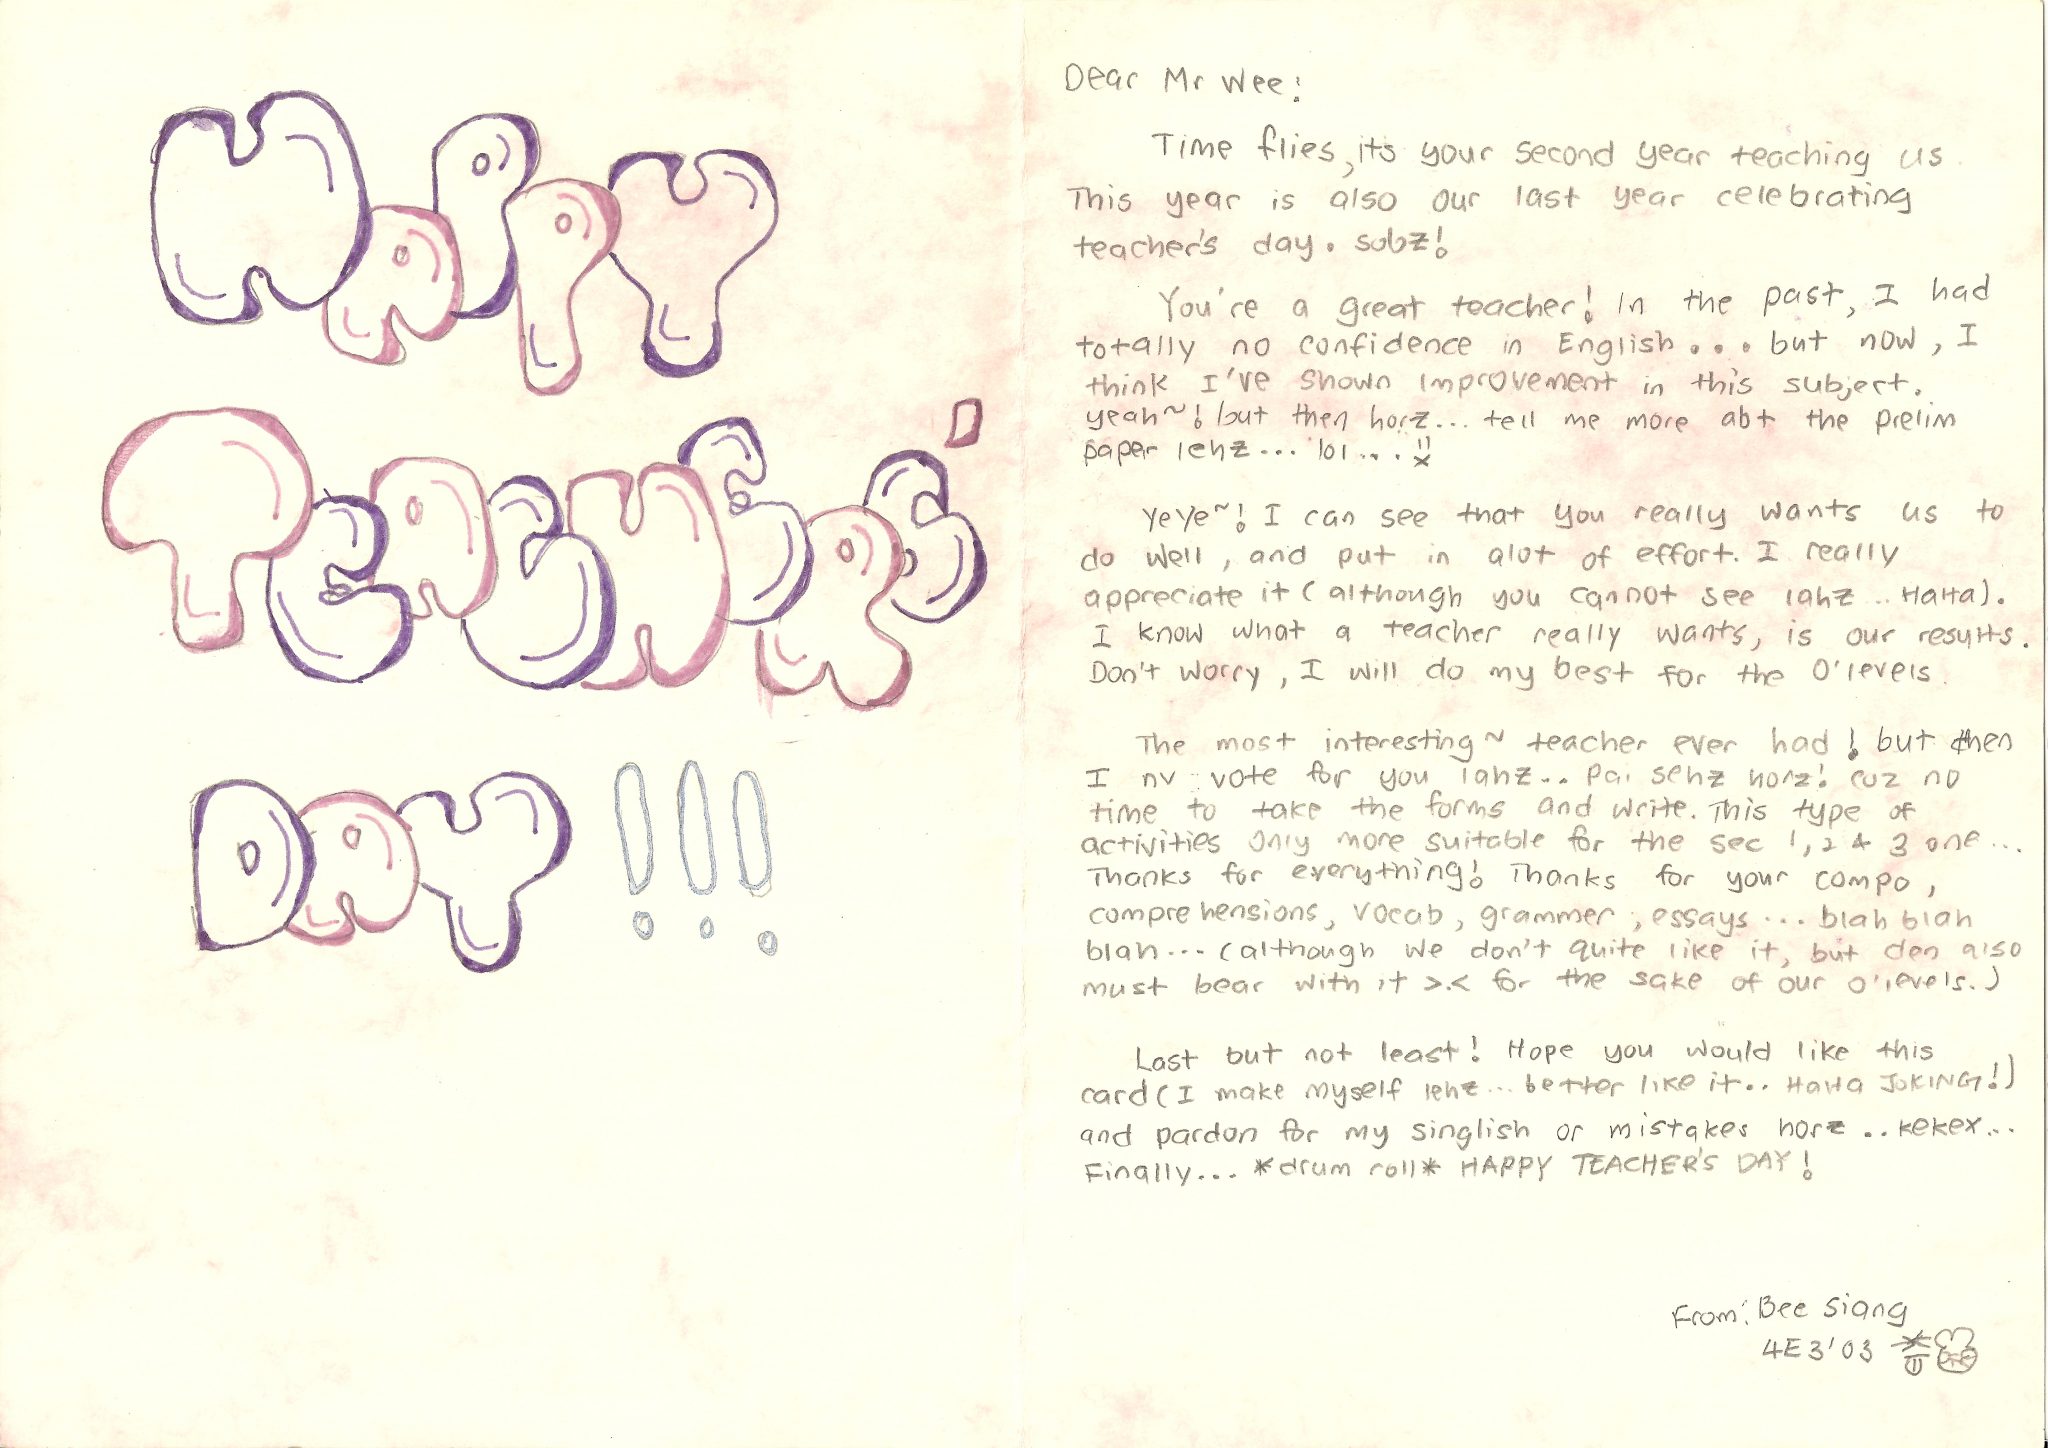 HAPPY
TEACHER'S
DAY !!!
Dear Mr Wee:
Time flies, its your second year teaching us.
This year is also our last year celebrating
teacher's day. sobz!
You're a great teacher! In the past, I had
totally no confidence in English... but now, I
think I've shown improvement in this subject.
yeah~! but then horz... tell me more abt the prelim
paper lehz... lol...
YeYe~! I can see that you really wants us to
do well, and put in alot of effort. I really
appreciate it (although you cannot see lahz.. HaHa).
I know what a teacher really wants, is our results.
Don't worry, I will do my best for the O'levels.
The most interesting~ teacher ever had! but then
I nv vote for you lahz.. Pai sehz horz! cuz no
time to take the forms and write. This type of
activities only more suitable for the sec 1, 2 & 3 one...
Thanks for everything! Thanks for your compo,
comprehensions, vocab, grammer, essays... blah blah
blah... (although we don't quite like it, but den also
must bear with it >.< for the sake of our O'levels.)
Last but not least! Hope you would like this
card (I make myself lehz... better like it.. HaHa JOKING!)
and pardon for my singlish or mistakes horz.. kekex...
Finally... *drum roll* HAPPY TEACHER'S DAY!
From: Bee Siang
4E3'03